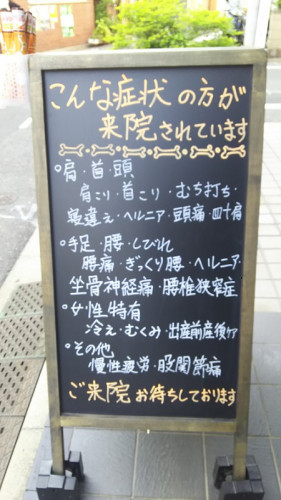 こんな症状の方が
来院されています
°肩・首・頭
肩こり・首こり・むち打ち・
寝違え・ヘルニア・頭痛・四十肩
°手足・腰・しびれ
腰痛・ぎっくり腰・ヘルニア・
坐骨神経痛・腰椎狭窄症
°女性特有
冷え・むくみ・出産前産後ケア
°その他
慢性疲労・股関節痛
ご来院お待ちしております